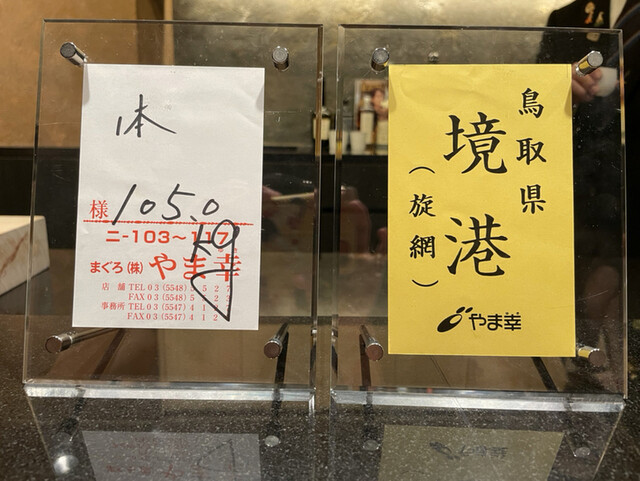 本
様 105.0
kg
ニ-103〜117
まぐろ(株) やま幸
店舗 TEL03(5548) 527
FAX03(5548)5 22
事務所 TEL03(5547)41
FAX03(5547)412
鳥取県
境港
(旋網)
やま幸